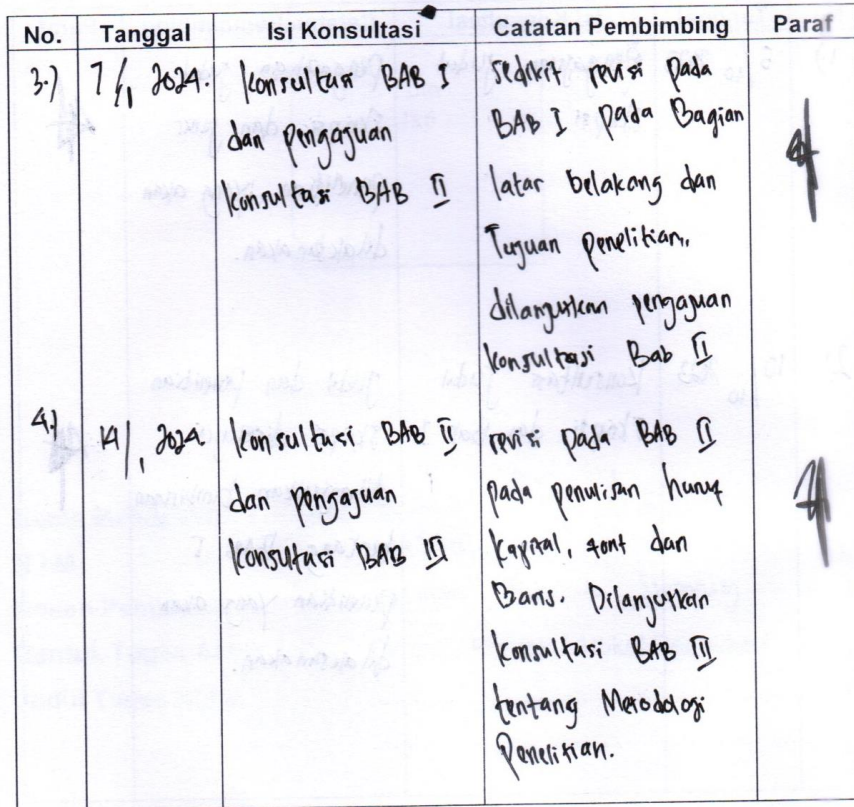 No. Tanggal Isi Konsultasi Catatan Pembimbing Paraf
3.) 7/1 2024. Konsultasi BAB I
dan pengajuan
konsultasi BAB II
sedikit revisi pada
BAB I pada Bagian
latar belakang dan
Tujuan penelitian,,
dilanjutkan pengajuan
konsultasi Bab II
4.) 14/1 2024. Konsultasi BAB II
dan pengajuan
konsultasi BAB III
revisi pada BAB II
pada penulisan huruf
kapital, font dan
Baris. Dilanjutkan
konsultasi BAB III
tentang Metodologi
Penelitian.